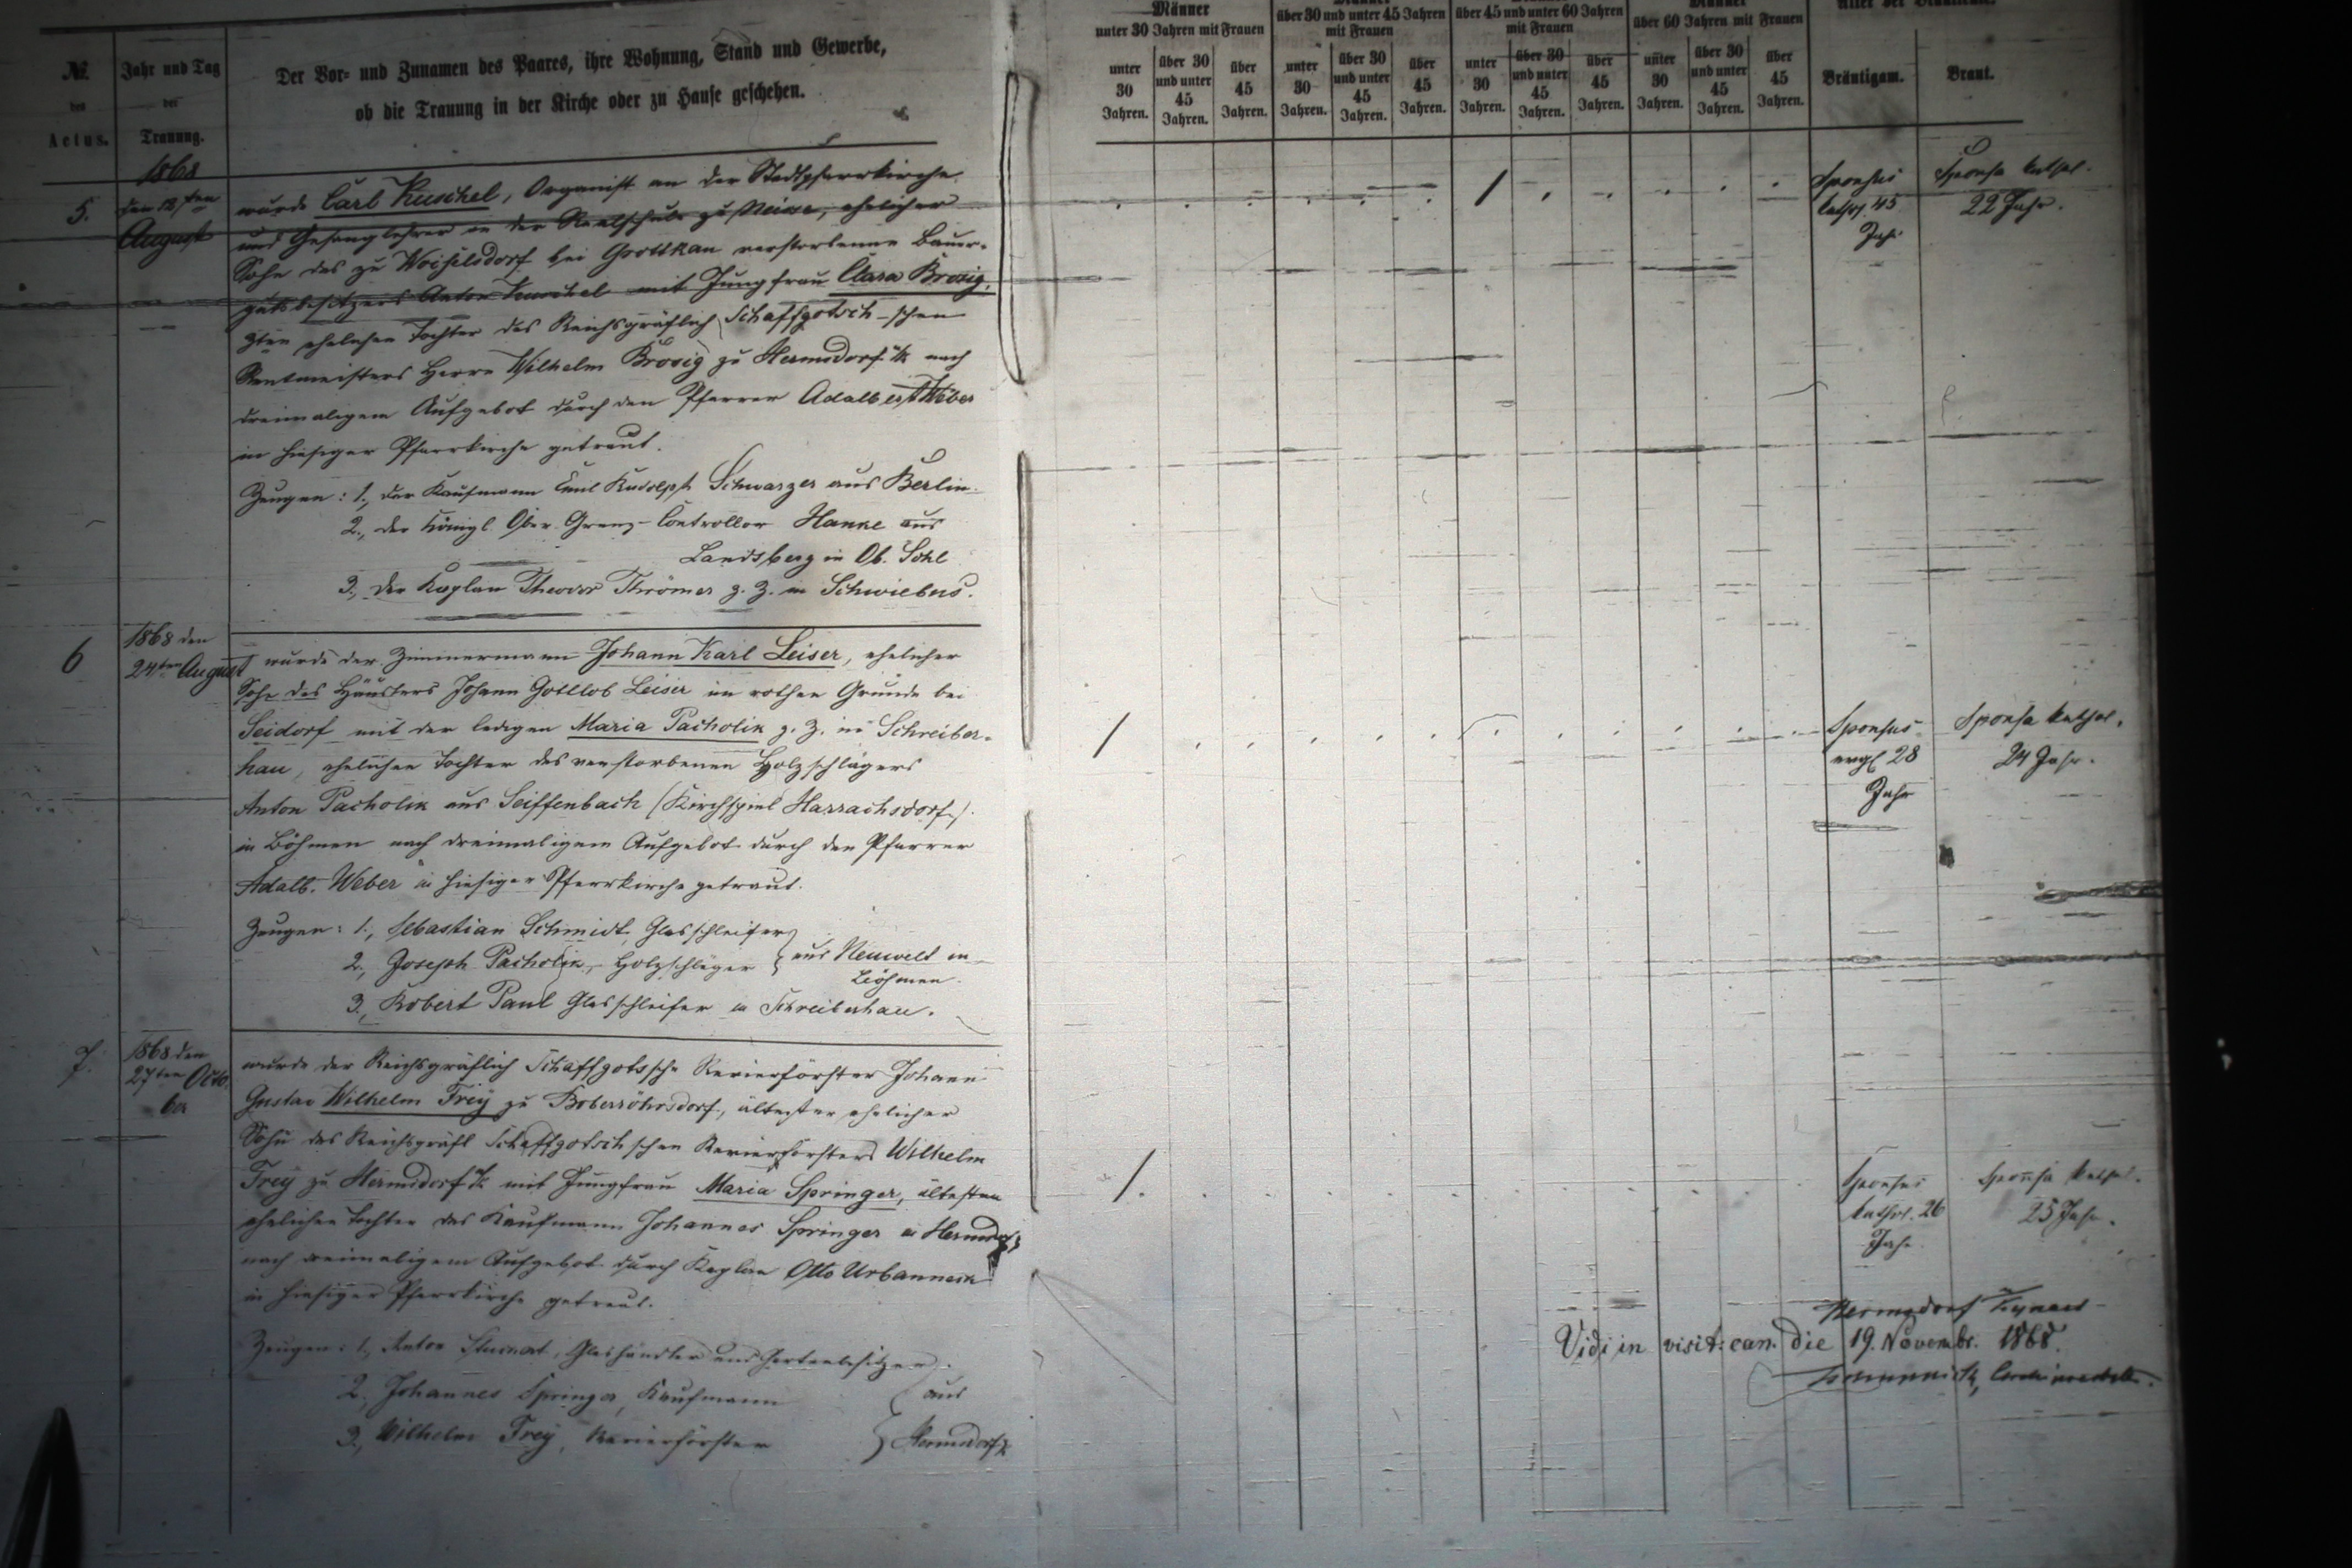 №
des
Actus.
Jahr und Tag
der
Trauung.
Der Vor- und Zunamen des Paares, ihre Wohnung, Stand und Gewerbe,
ob die Trauung in der Kirche oder zu Hause geschehen.
Männer
unter 30 Jahren mit Frauen
unter 30 Jahren.
über 30 und unter 45 Jahren.
über 45 Jahren.
über 30 und unter 45 Jahren
mit Frauen
unter 30 Jahren.
über 30 und unter 45 Jahren.
über 45 Jahren.
über 45 und unter 60 Jahren
mit Frauen
unter 30 Jahren.
über 30 und unter 45 Jahren.
über 45 Jahren.
Männer
über 60 Jahren mit Frauen
unter 30 Jahren.
über 30 und unter 45 Jahren.
über 45 Jahren.
Alter der Brautleute.
Bräutigam.
Braut.
5.
1868
den 12ten
August
wurde Carl Kuschel, Organist an der Stadtpfarrkirche
und Gesanglehrer an der Realschule zu Neisse, ehelicher
Sohn des zu Woiselsdorf bei Grottkau verstorbenen Bauer-
gutsbesitzers Anton Kuschel mit Jungfrau Clara Brosig,
3ten ehelichen Tochter des Reichsgräflich Schaffgotsch-schen
Rentmeisters Herrn Wilhelm Brosig zu Hermsdorf u/K nach
dreimaligem Aufgebot durch den Pfarrer Adalbert Weber
in hiesiger Pfarrkirche getraut.
Zeugen: 1., der Kaufmann Emil Rudolph Schwarzer aus Berlin.
2., der Königl. Ober-Grenz-Controllor Hanke aus
Landsberg in Ob. Schl
3., der Kaplan Theodor Thrömer z. Z. in Schwiebus.
/
Sponsus
kathol. 45
Jahr
Sponsa kathol.
22 Jahr.
6
1868 den
24ten August
wurde der Zimmermann Johann Karl Leiser, ehelicher
Sohn des Häuslers Johann Gottlob Leiser im rothen Grunde bei
Seidorf mit der ledigen Maria Pacholik z. Z. in Schreiber-
hau, ehelichen Tochter des verstorbenen Holzschlägers
Anton Pacholik aus Seiffenbach (Kirchspiel Harrachsdorf)
in Böhmen nach dreimaligem Aufgebot durch den Pfarrer
Adalb. Weber in hiesiger Pfarrkirche getraut.
Zeugen: 1., Sebastian Schmidt, Glasschleifer
2., Joseph Pacholik, Holzschläger } aus Neuwelt in
Böhmen.
3., Robert Paul Glasschleifer in Schreiberhau.
/
Sponsus
evgl 28
Jahr
Sponsa kathol.
24 Jahr.
7.
1868 den
27ten Octo-
ber
wurde der Reichsgräflich Schaffgotssche Revierförster Johann
Gustav Wilhelm Frey zu Boberröhrsdorf, ältester ehelicher
Sohn des Reichsgräfl Schaffgotsch schen Revierförsters Wilhelm
Frey zu Hermsdorf u/K mit Jungfrau Maria Springer, ältesten
ehelichen Tochter des Kaufmann Johannes Springer in Hermsdorf
nach dreimaligem Aufgebot durch Kaplan Otto Urbanneck
in hiesiger Pfarrkirche getraut.
Zeugen: 1., Anton Glashändler und Gartenbesitzer
2., Johannes Springer, Kaufmann } aus
3., Wilhelm Frey, Revierförster } Hermsdorf
/.
Sponsus
kathol. 26
Jahr
Sponsa kathol.
25 Jahr.
Hermsdorf Kynast
Vidi in visit: can. die 19. Novembr. 1868.